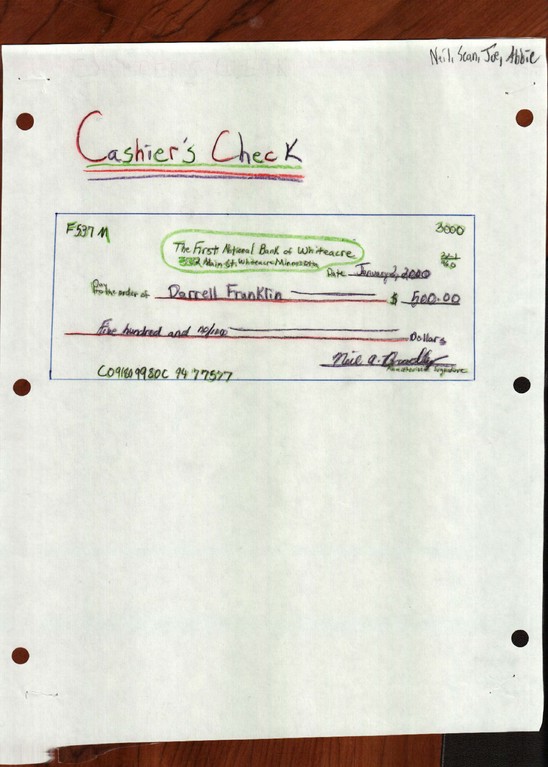 Neil, Sean, Joe, Abbie
Cashier's Check
F537 M
3000
The First National Bank of Whiteacre
Main St. Whiteacre Minnesota
Date January 2, 2000
Pay to the order of Darrell Franklin $ 500.00
Five hundred and no/100 Dollars
Neil A. Bradley
Authorized Signature
C091809980C 94 77577